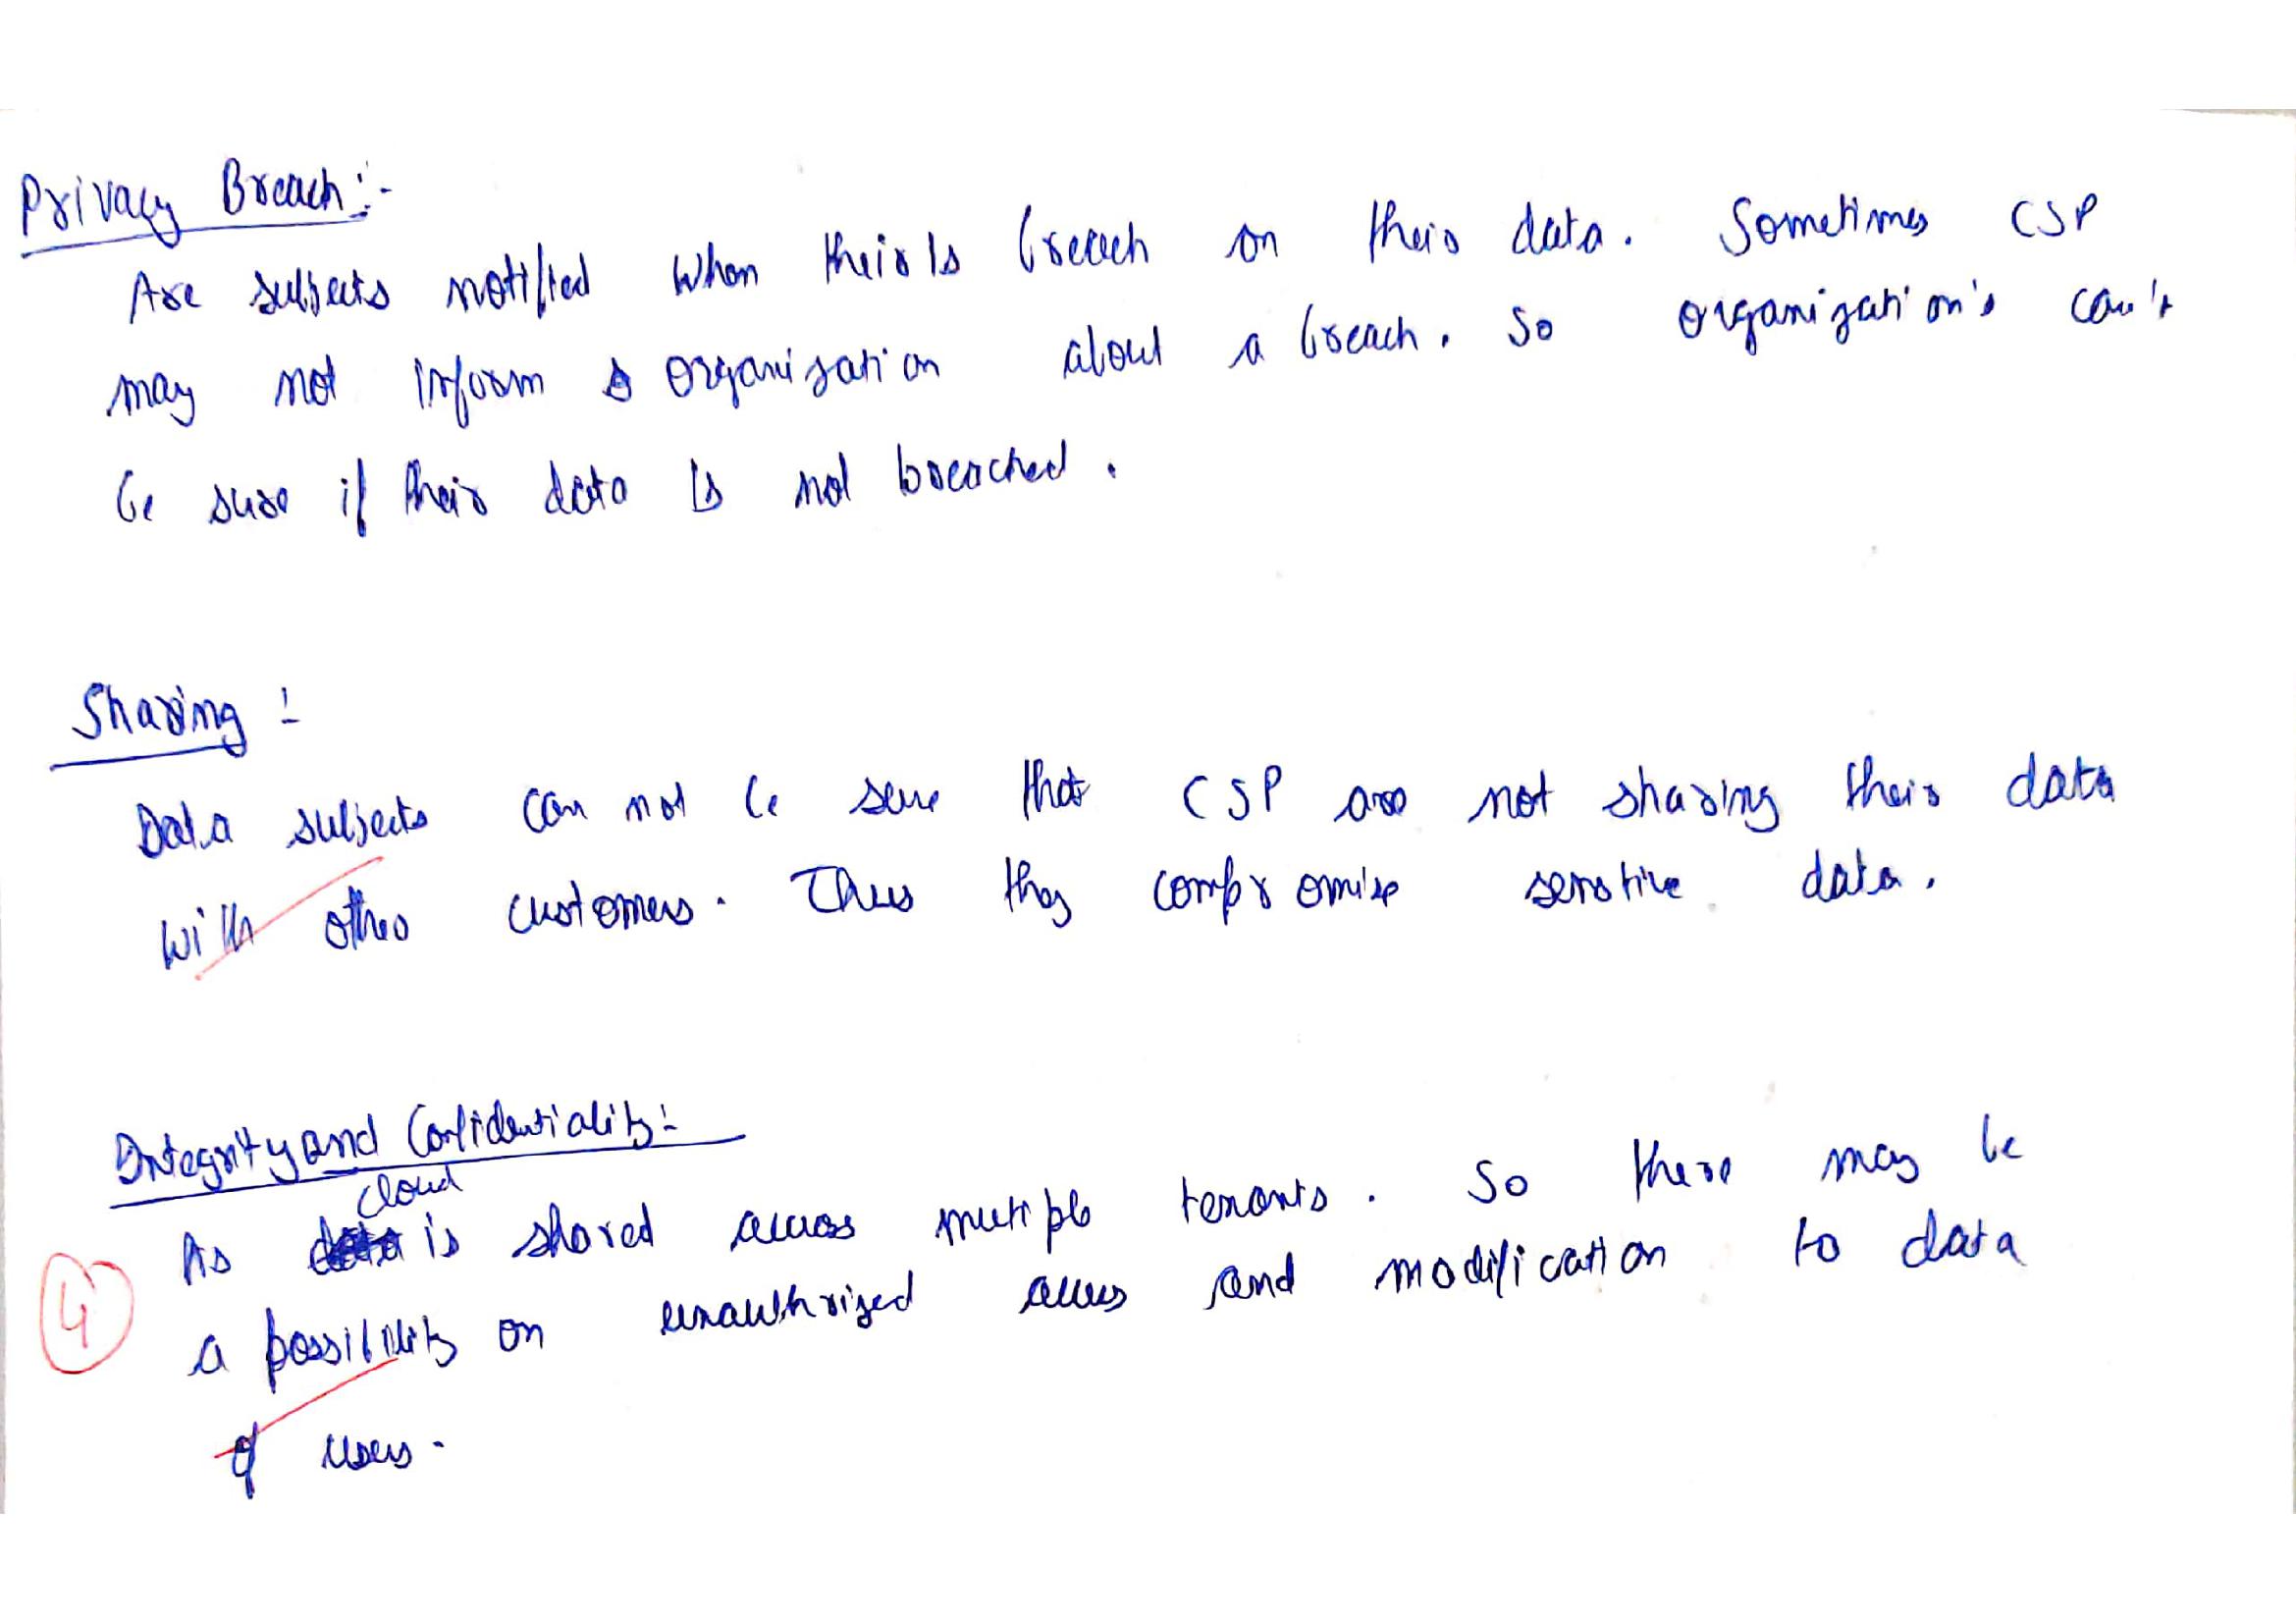 Privacy Breach:-
Are subjects notified when their is breach on their data. Sometimes CSP
may not inform organization about a breach. So organization's can't
be sure if their data is not breached.
Sharing :-
Data subjects can not be sure that CSP are not sharing their data
with other customers. Thus they compromise sensitive data.
Integrity and Confidentiality:-
cloud
As is shared across mutiple tenants. So there may be
a possibility on unauthrized access and modification to data
of users.
4